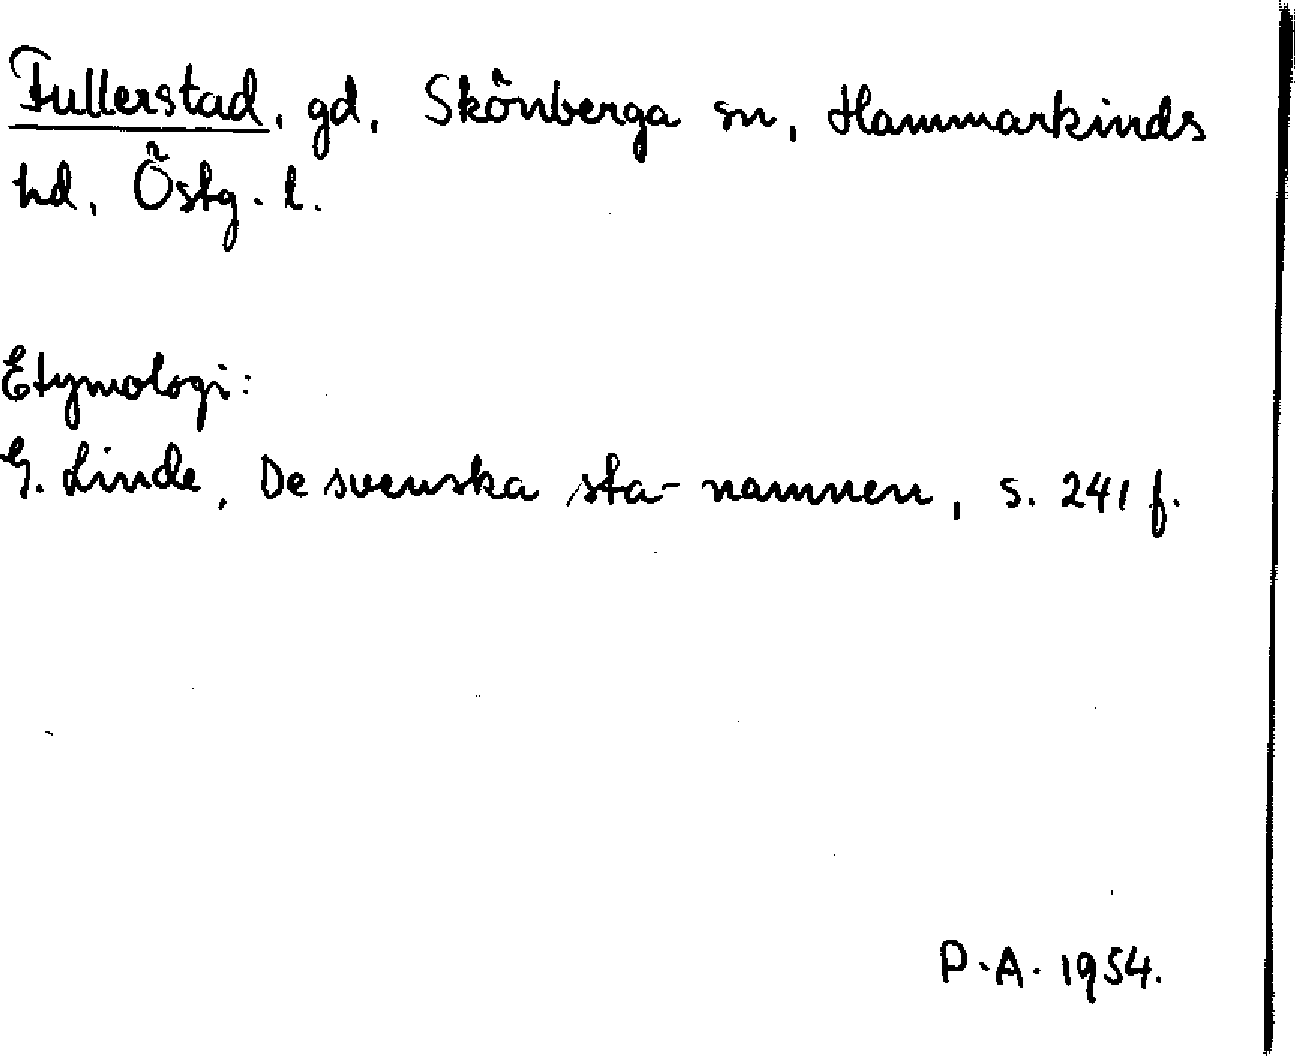 Fullerstad, gd, Skönberga sn, Hammarkinds
hd, Östg. l.
Etymologi:
G. Linde, De svenska sta-namnen, s. 241 f.
P.A. 1954.